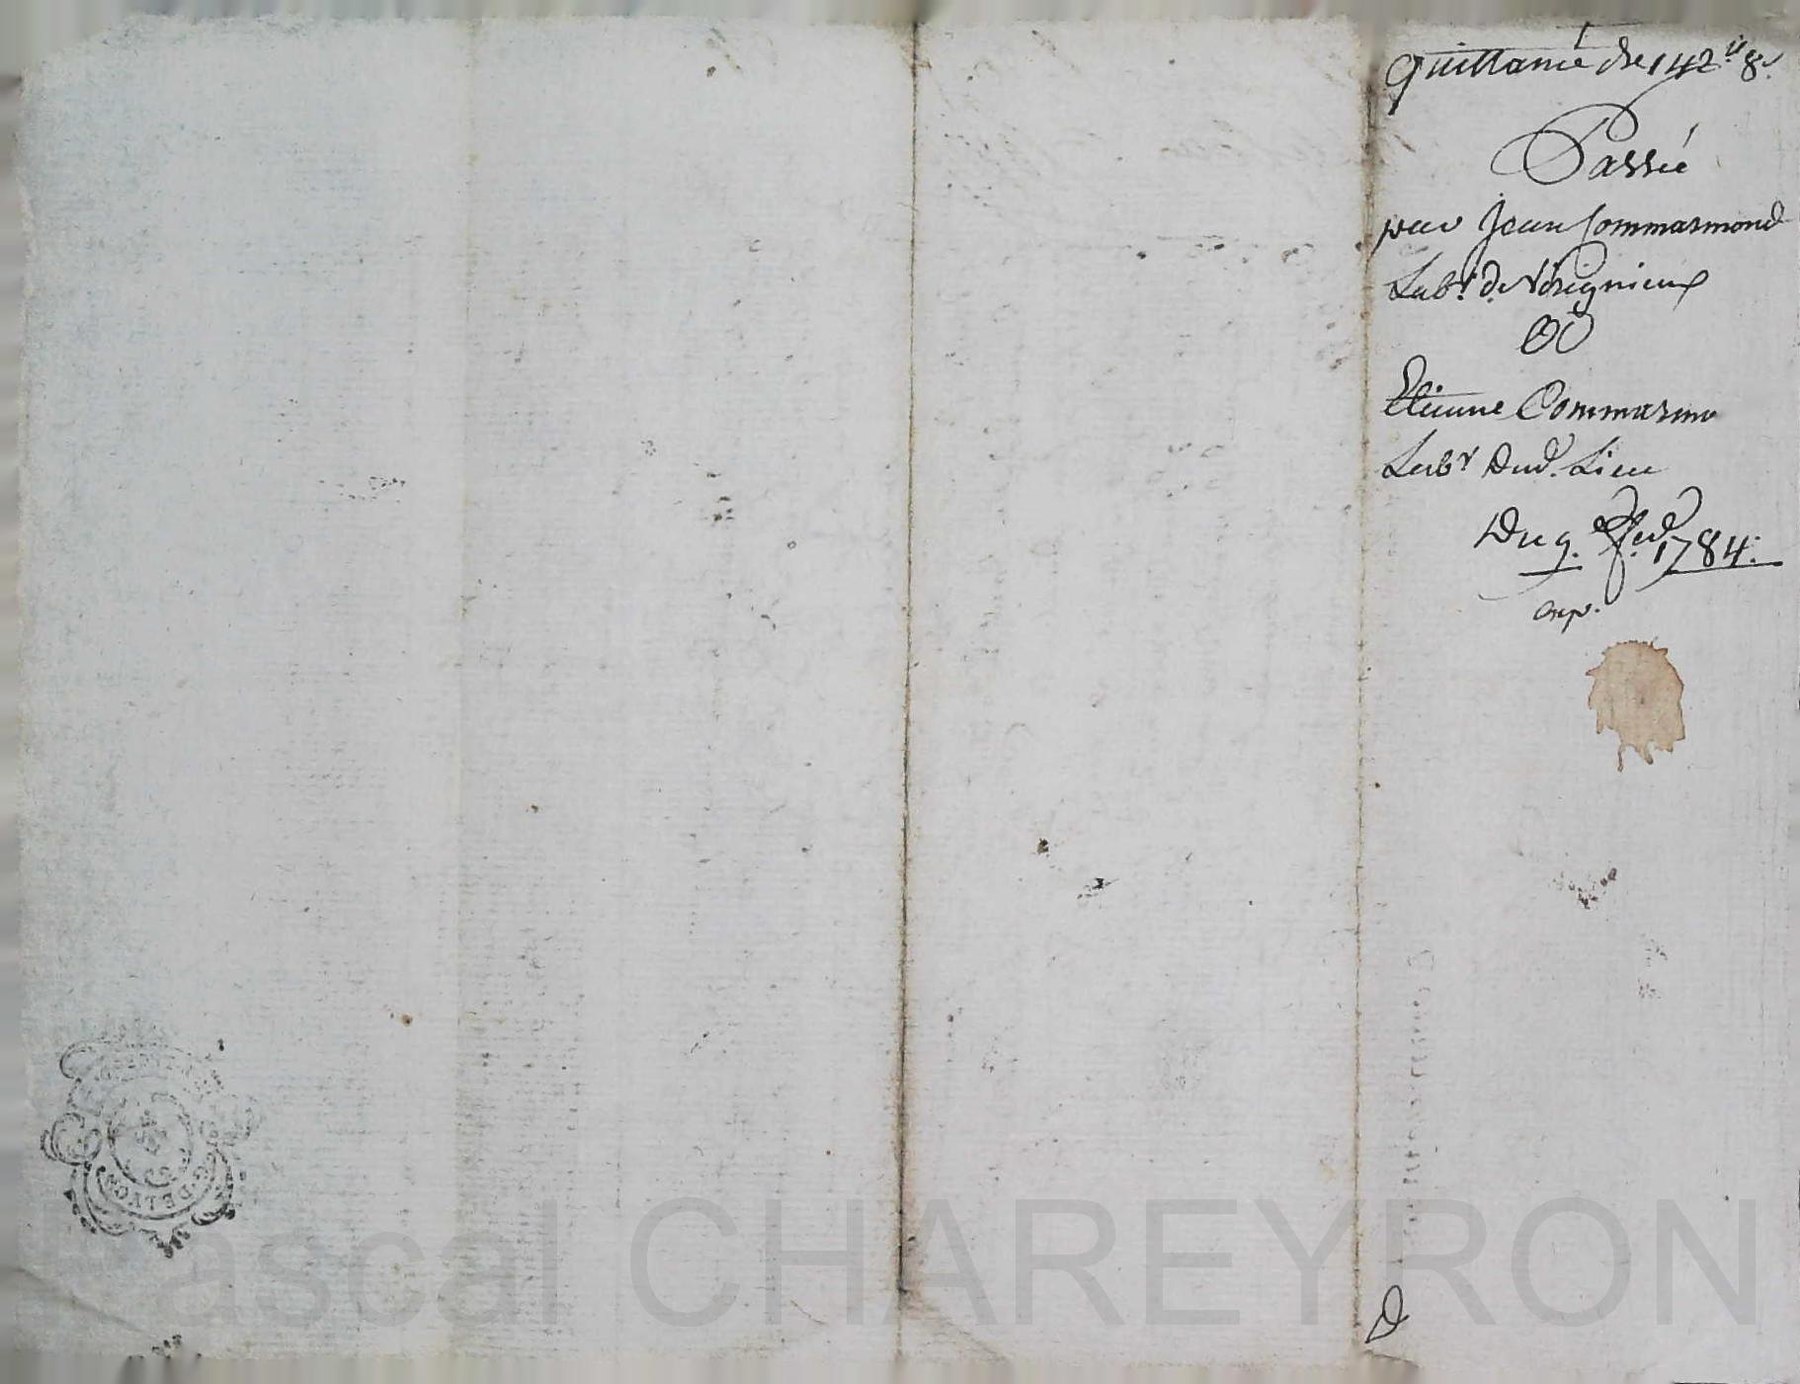 Quittance de 142ᵗᵗ 8ˢ
Passée
par Jean Commarmond
Labʳ de Vérignieux
A
Etienne Commarmo
Labʳ dud. Lieu
Du 9. 1784.
exp.
DE LYON
Pascal CHAREYRON